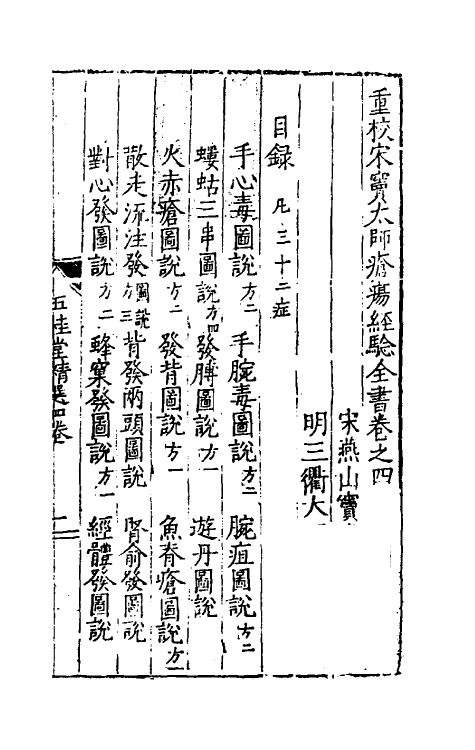 重校宋竇太師瘡瘍經驗全書卷之四
宋燕山竇
明三衢大
目録 凡三十二症
手心毒圖說方二 手腕毒圖說方二 腕疽圖說方二
螻蛄三串圖說方四 發膊圖說方一 遊丹圖說
火赤瘡圖說方二 發背圖說方一 魚脊瘡圖說方一
散走流注發圖說方三 背發兩頭圖說 腎俞發圖說
對心發圖說方二 蜂窠發圖說方一 經體發圖說
五桂堂精選四卷 一